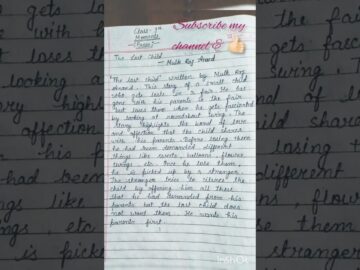 Class - 9th
Moments
Prose
Subscribe my
channel &
The Lost Child
- Mulk Raj Anand
"The lost child" written by Mulk Raj
Anand. This story of a small child
who gets lost in a fair. He has
gone with his parents in the fair
but loses them when he gets fascinated
by looking at roundabout swing. The
story highlights the bond of love
and affection that the child shares
with his parents. Before losing them
he had been demanded different
things like sweets, balloons, flowers
swings etc. Once he lose them
he is picked up by a stranger.
The stranger tries to silence the
child by offering him all those
that he had demanded from his
parents but the lost child does
not want them. He wants his
parents first.